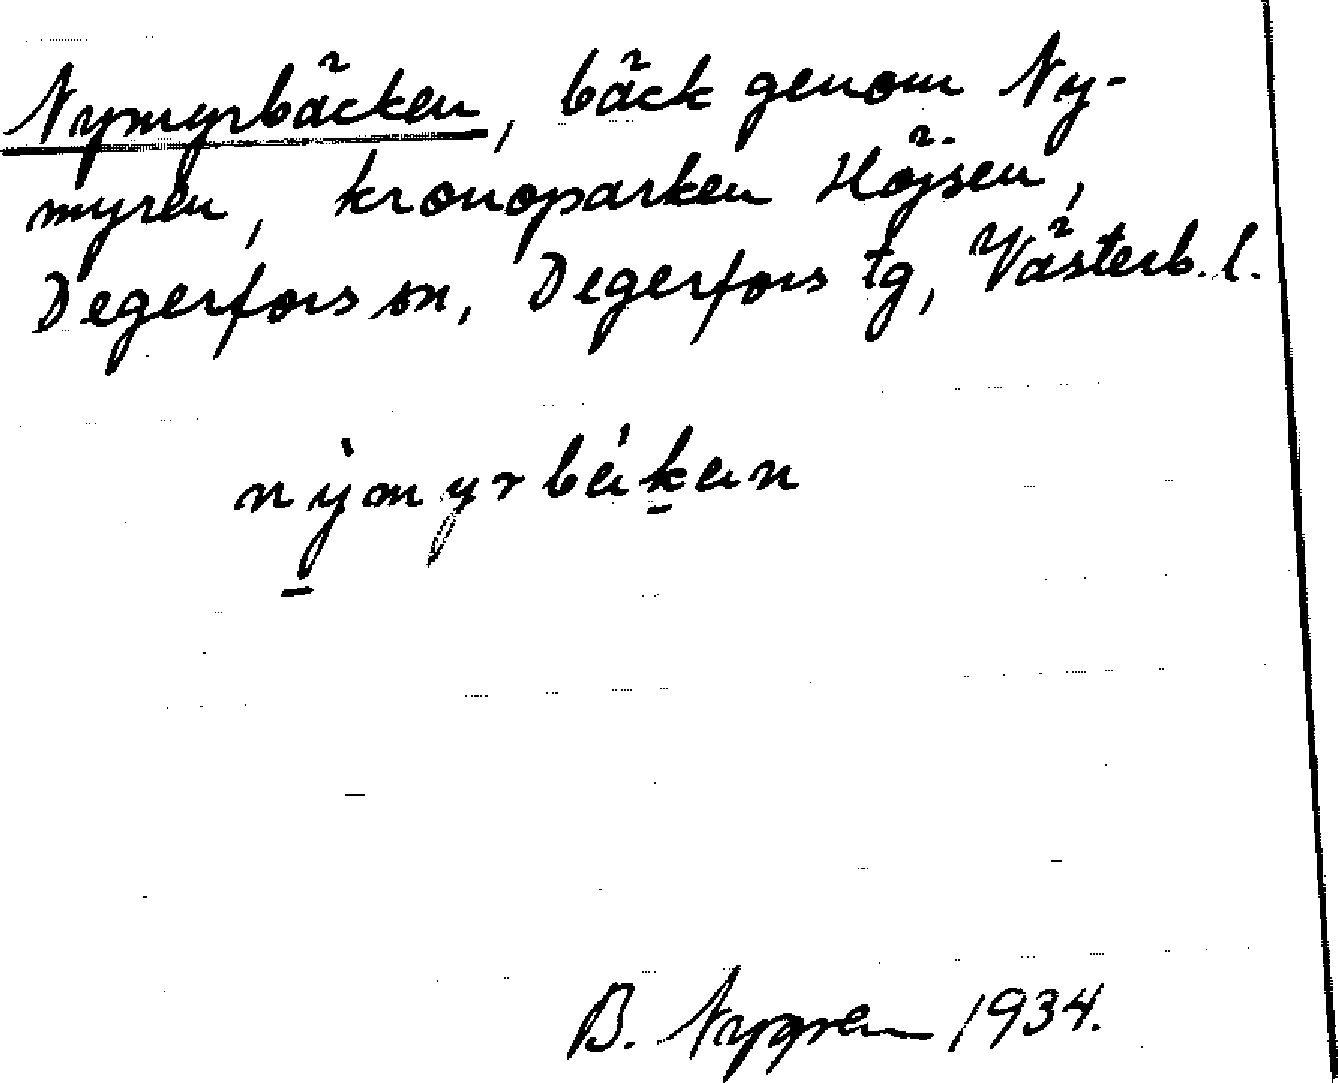 Nymyrbäcken, bäck genom Ny-
myren, kronoparken Höjsen,
Degerfors sn, Degerfors tg, Västerb. l.
B. Nygren 1934.